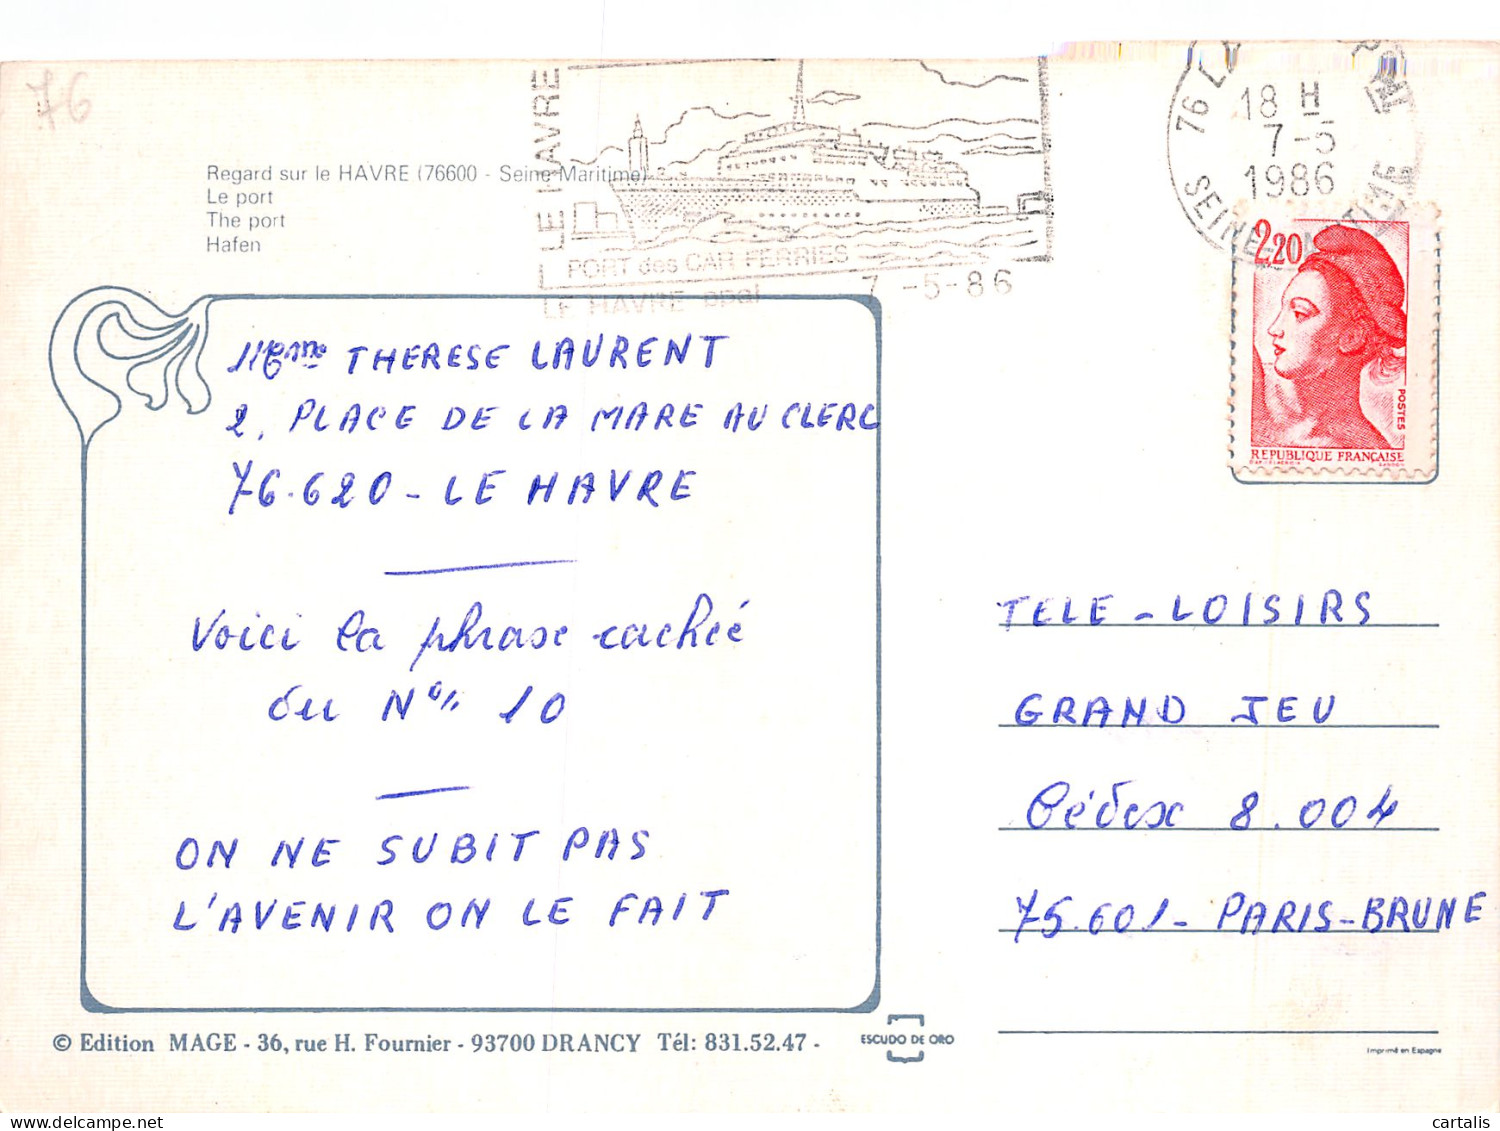 76
Regard sur le HAVRE (76600 - Seine-Maritime)
Le port
The port
Hafen
LE HAVRE
PORT des CAR FERRIES
LE HAVRE ppal
7-5-86
76 LE
18 H
7-5
1986
SEINE-MARITIME
2,20
POSTES
REPUBLIQUE FRANÇAISE
Mme THERESE LAURENT
2, PLACE DE LA MARE AU CLERC
76.620 - LE HAVRE
Voici la phrase cachée
du N° 10
ON NE SUBIT PAS
L'AVENIR ON LE FAIT
TELE - LOISIRS
GRAND JEU
Cédex 8.004
75.601 - PARIS-BRUNE
© Edition MAGE - 36, rue H. Fournier - 93700 DRANCY Tél: 831.52.47 -
ESCUDO DE ORO
Imprimé en Espagne
cartalis